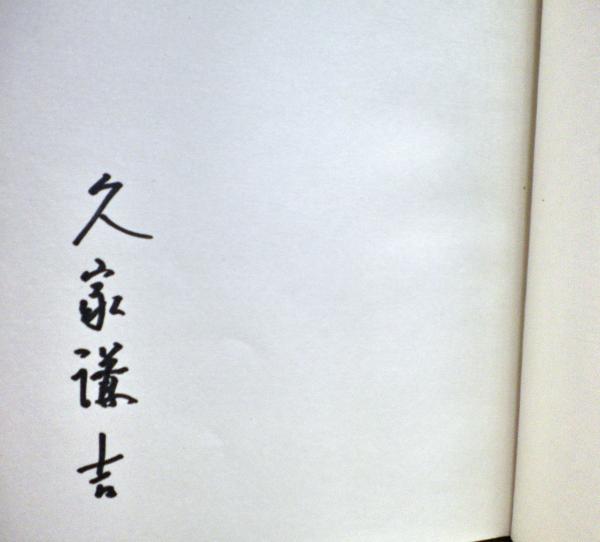 久家謙吉